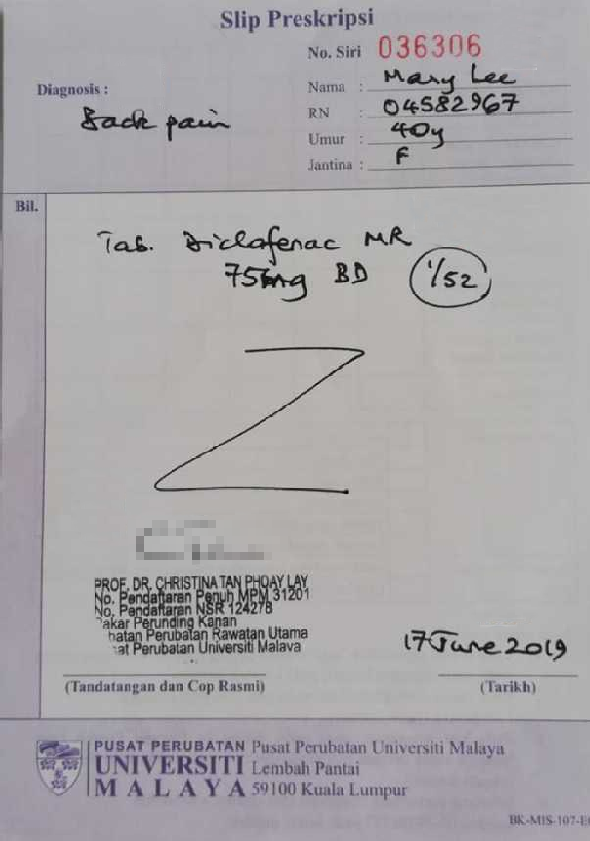 Slip Preskripsi
No. Siri 036306
Diagnosis :
Back pain
Nama : Mary Lee
RN : 04582967
Umur : 40y
Jantina : F
Bil.
Tab. Diclofenac MR
75mg BD 1/52
PROF. DR. CHRISTINA TAN PHOAY LAY
No. Pendaftaran Penuh MPM 31201
No. Pendaftaran NSR 124278
akar Perunding Kanan
batan Perubatan Rawatan Utama
at Perubatan Universiti Malaya
17 June 2019
(Tandatangan dan Cop Rasmi)
(Tarikh)
PUSAT PERUBATAN
UNIVERSITI
MALAYA
Pusat Perubatan Universiti Malaya
Lembah Pantai
59100 Kuala Lumpur
BK-MIS-107-E0